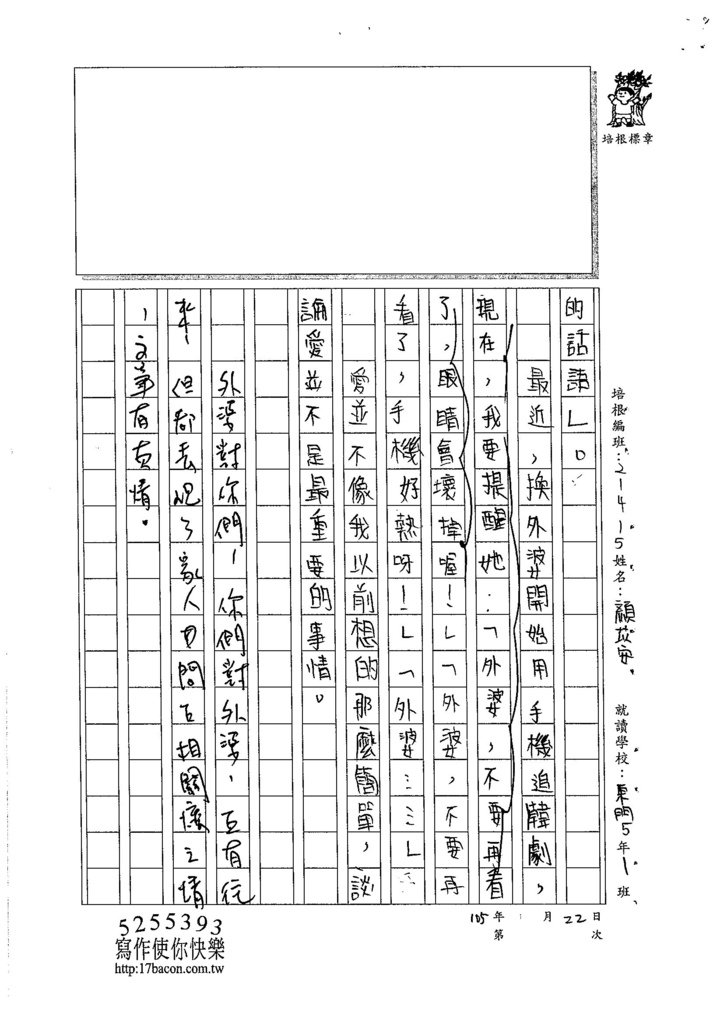 培根標章
培根編班：21415姓名：顏苡安 就讀學校：東門5年1班
的話語」。
最近，換外婆開始用手機追韓劇，
現在，我要提醒她：「外婆，不要再看
了，眼睛會壞掉喔！」「外婆，不要再
看了，手機好熱呀！」「外婆……」
愛並不像我以前想的那麼簡單，談
論愛並不是最重要的事情。
外婆對你們，你們對外婆，互有往
來，但都表現了家人間互相關懷之情
，文筆有真情。
105年 月22日
第 次
5255393
寫作使你快樂
http:17bacon.com.tw